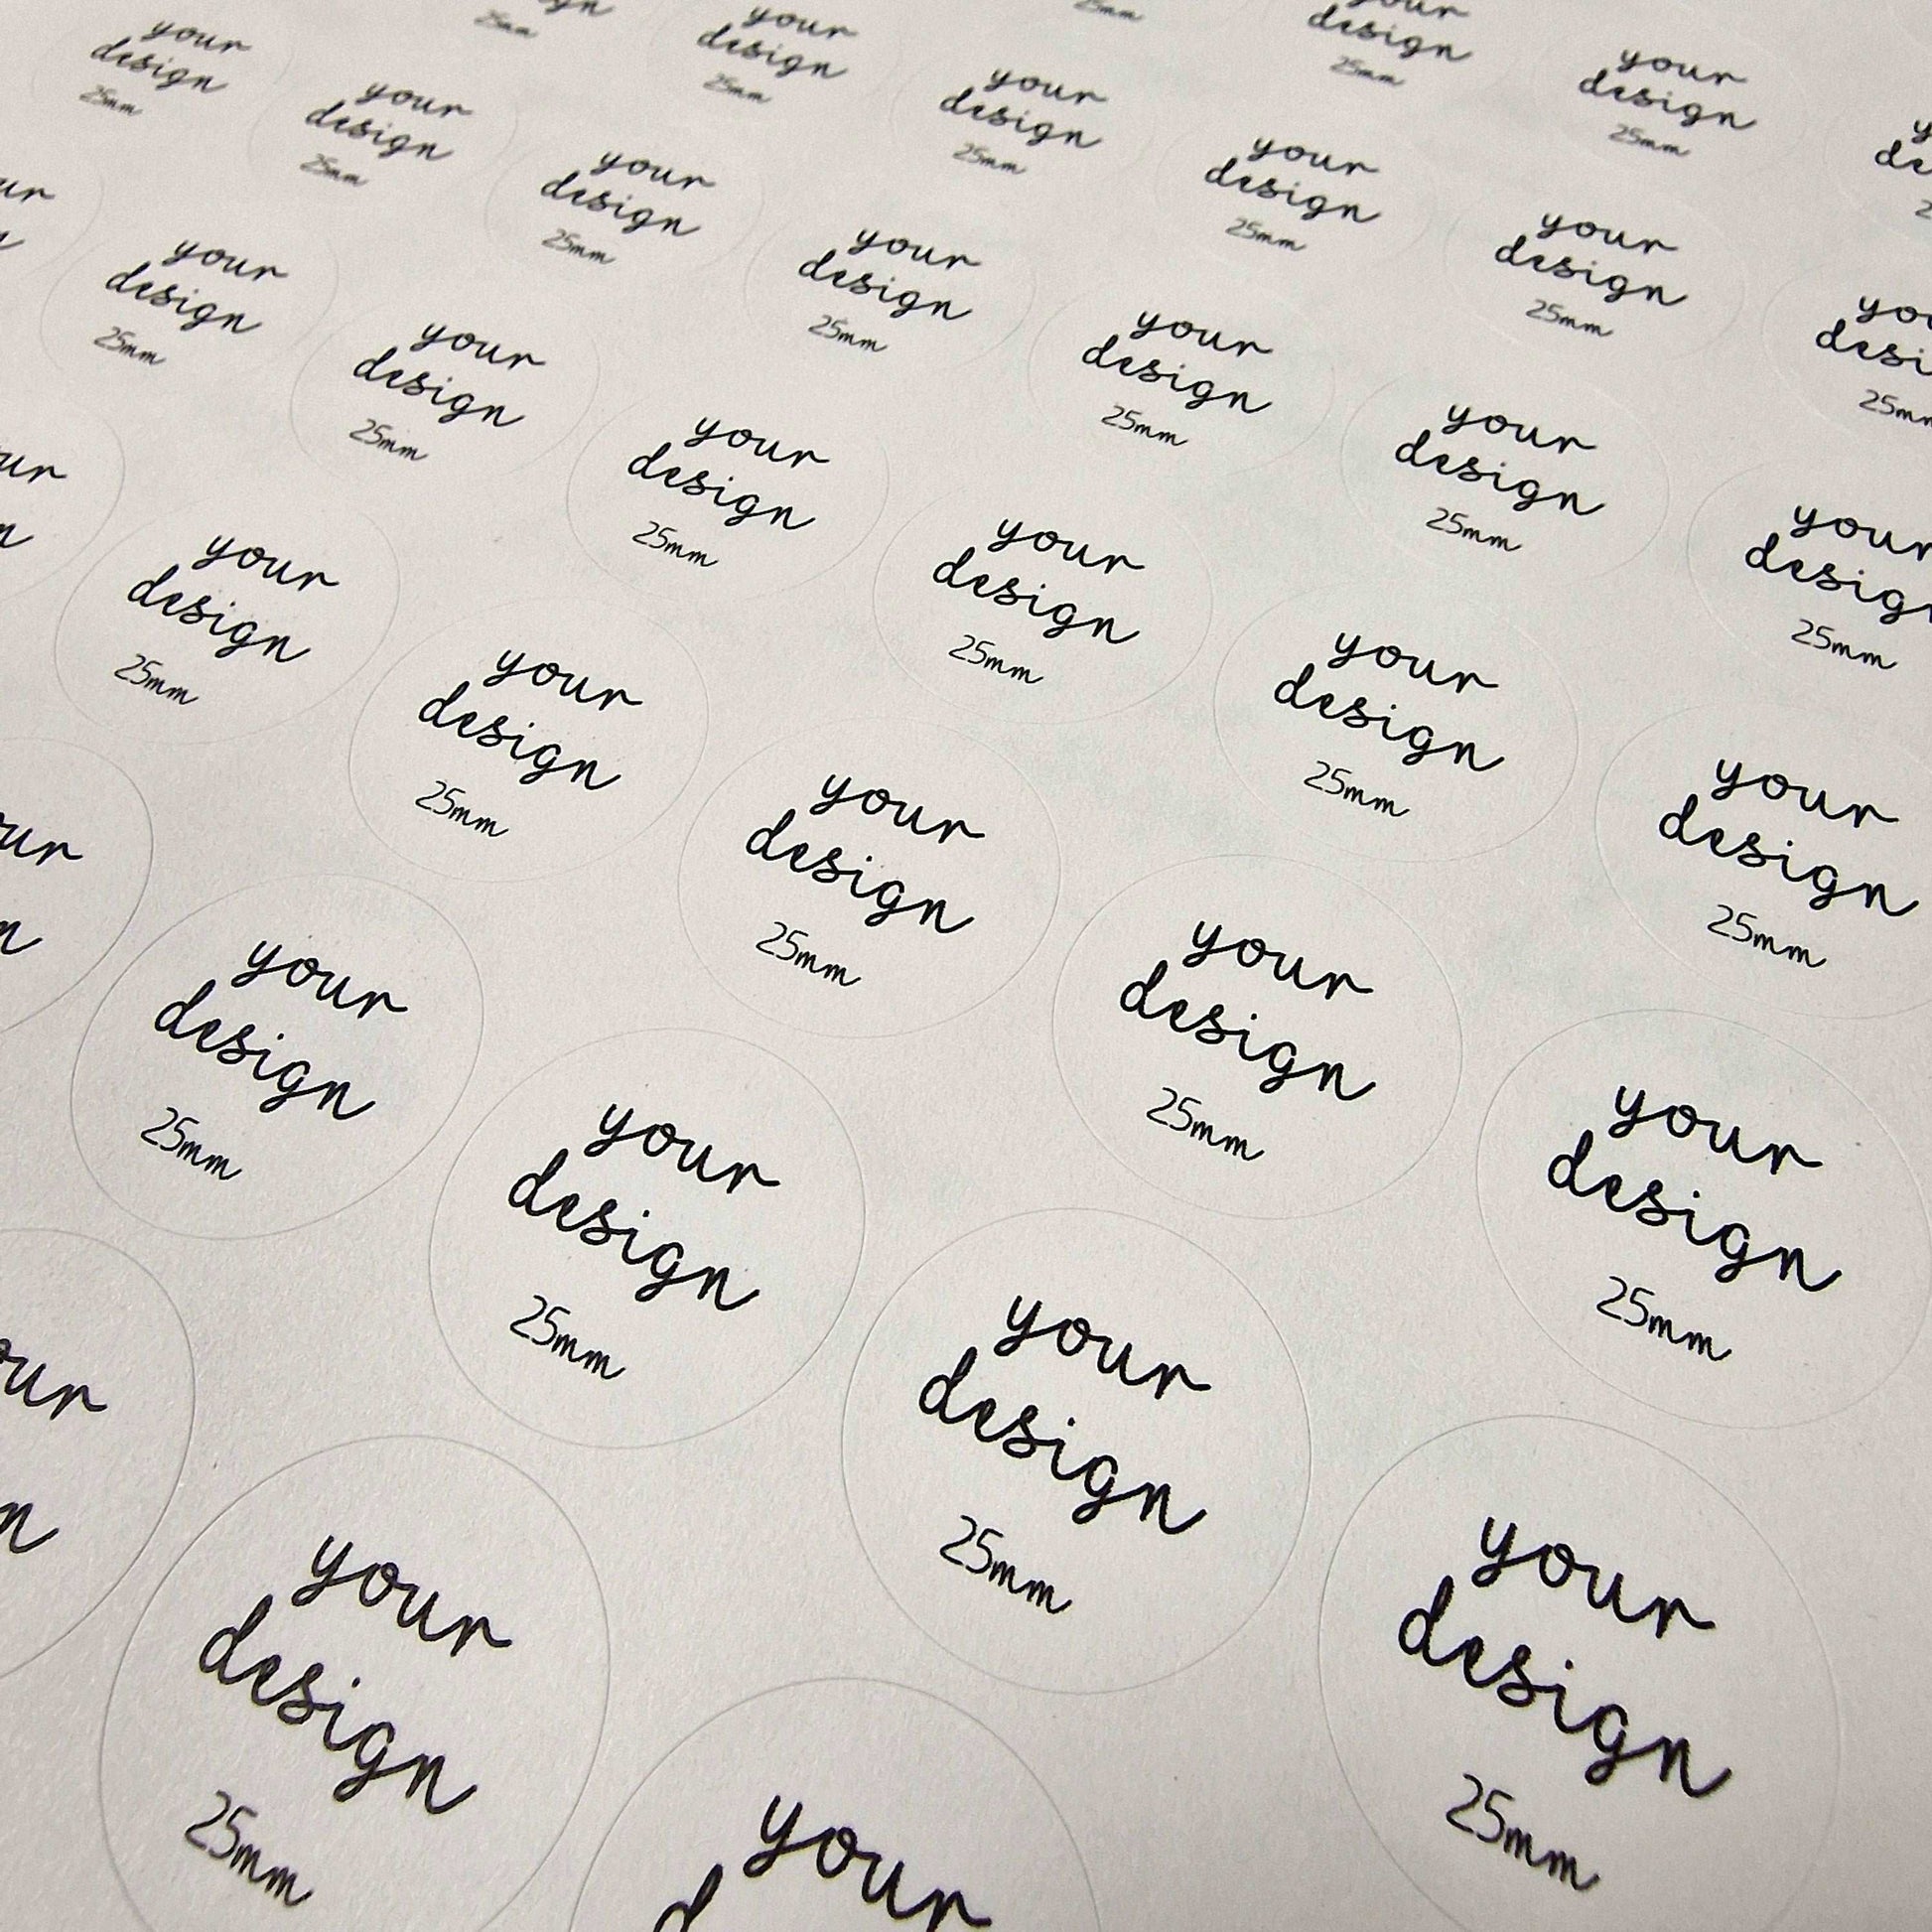 25mm
25mm
your
design
25mm
your
design
25mm
your
design
25mm
your
design
25mm
your
design
25mm
your
design
25mm
your
design
25mm
your
design
25mm
your
design
25mm
your
design
25mm
your
design
25mm
your
design
25mm
your
design
25mm
your
design
25mm
your
design
25mm
your
design
25mm
your
design
25mm
your
25mm
your
design
25mm
your
design
25mm
your
design
25mm
your
design
25mm
your
design
25mm
your
design
25mm
your
design
25mm
your
design
25mm
your
design
25mm
your
design
25mm
your
design
25mm
your